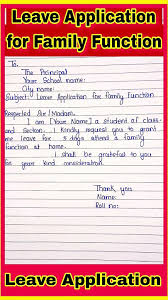 Leave Application
for Family Function
To,
The Principal
Your School name:
City name:
Subject: Leave Application for Family Function
Respected Sir/Madam,
I am [Your Name] a student of class-
and Section. I kindly request you to grant
me leave for 3 days attend a family
function at home.
I shall be gratefull to you
for your kind consideration.
Thank you,
Name:
Roll no:
Leave Application